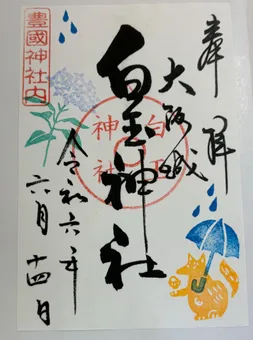 奉拝
大阪城
白玉神社
令和六年
六月十四日
豊國神社内
白玉
神社